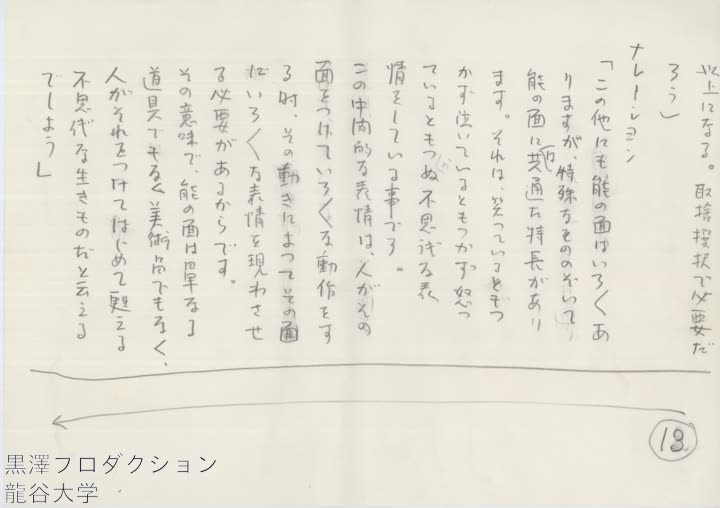 以上になる。取捨撰択で必要だ
ろう」
ナレーション
「この他にも能の面はいろ〱あ
りますが、特殊なもののぞいて
能の面に共通な特長があり
ます。それは、笑っているともつ
かず泣いているともつかず怒っ
ているともつかぬ不思議な表
情をしている事です。
この中間的な表情は、人がその
面をつけていろ〱な動作をす
る時、その動きによってその面
にいろ〱な表情を現わさせ
る必要があるからです。
その意味で、能の面は単なる
道具でもなく美術品でもなく、
人がそれをつけてはじめて甦える
不思議な生きものだと云える
でしょう」
13
黒澤プロダクション
龍谷大学